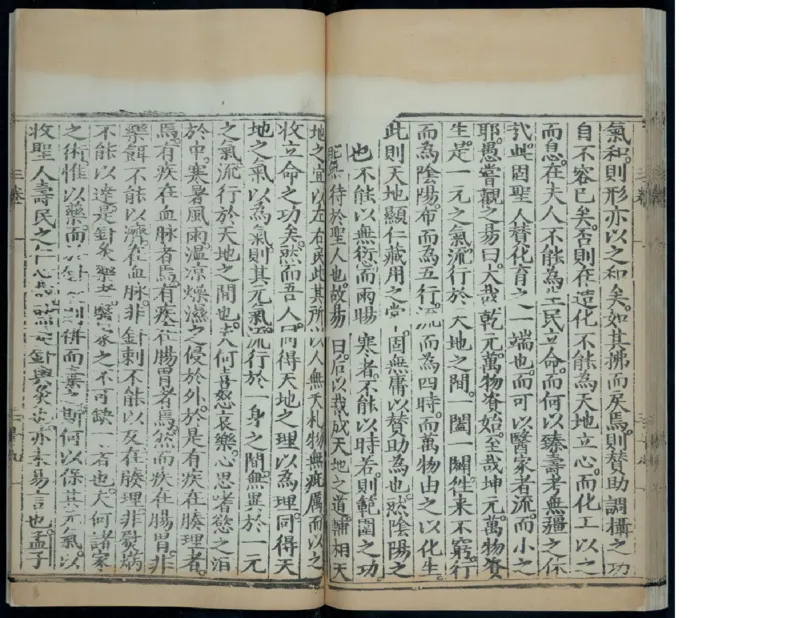 氣和則形亦以之和矣如其拂而戾焉則贊助調攝之功
自不容已矣否則在造化不能為天地立心而化工以之
而息在夫人不能為生民立命而何以臻壽考無疆之休
哉此固聖人贊化育之一端也而可以醫家者流而小之
耶愚嘗觀之易曰大哉乾元萬物資始至哉坤元萬物資
生是一元之氣流行於天地之間一闔一闢往來不窮行
而為陰陽布而為五行流而為四時而萬物由之以化生
此則天地顯仁藏用之常固無庸以贊助為也然陰陽之
也不能以無愆而雨暘寒暑不能以時若則範圍之功
無待於聖人也故易曰后以裁成天地之道輔相天
地之宜以左右民此其所以人無夭札物無疵厲而以之
收立命之功矣然而吾人同得天地之理以為理同得天
地之氣以為氣則其元氣流行於一身之間無異於一元
之氣流行於天地之間也夫何喜怒哀樂心思嗜慾之汨
於中寒暑風雨溫涼燥濕之侵於外於是有疾在腠理者
焉有疾在血脉者焉有疾在腸胃者焉然而疾在腸胃非
藥餌不能以濟在血脉非針刺不能以及在腠理非熨焫
不能以達是針灸藥者醫家之不可缺一者也夫何諸家
之術惟以藥而於針則併而棄之斯何以保其元氣以
收聖人壽民之仁心哉然是針與灸亦未易言也孟子
三卷
三卷